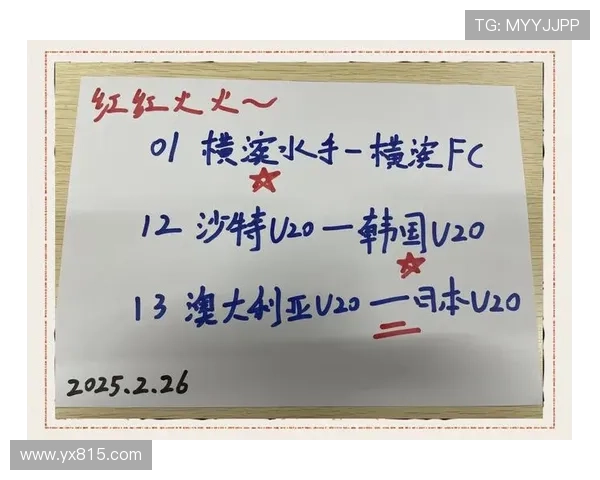 TG: MYYJJPP
红红火火~
01 横滨水手-横滨FC
12 沙特U20-韩国U20
13 澳大利亚U20-日本U20
2025.2.26
www.yx815.com